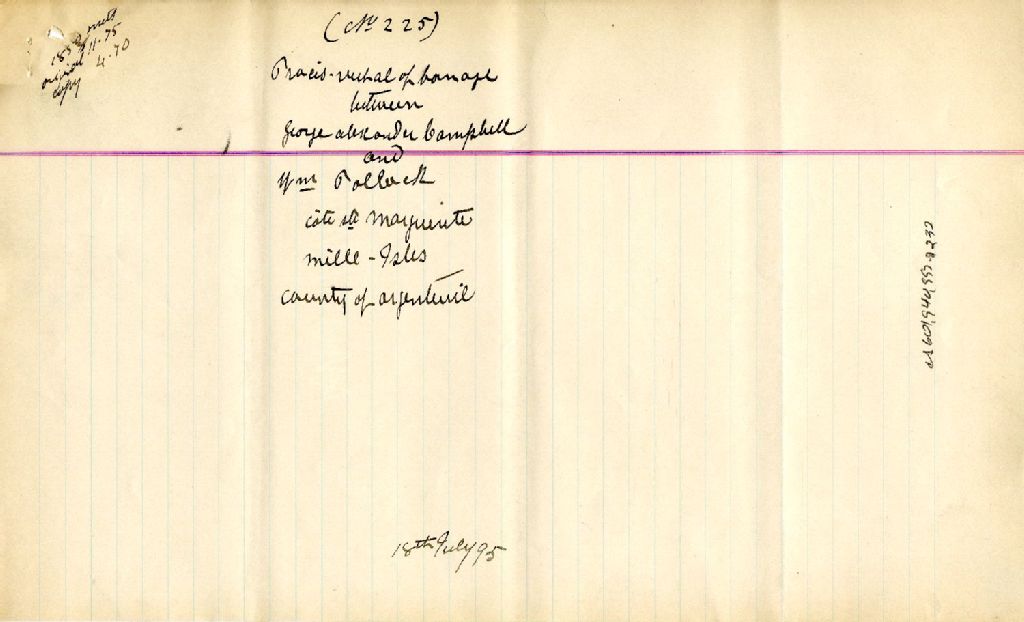 1859 mots
original 11.75
copy 4.70
(No 225)
Procès-verbal of bornage
between
George alexander Campbell
and
Wm Pollock
côte ste Marguerite
mille-Isles
county of argenteuil
18th July 95